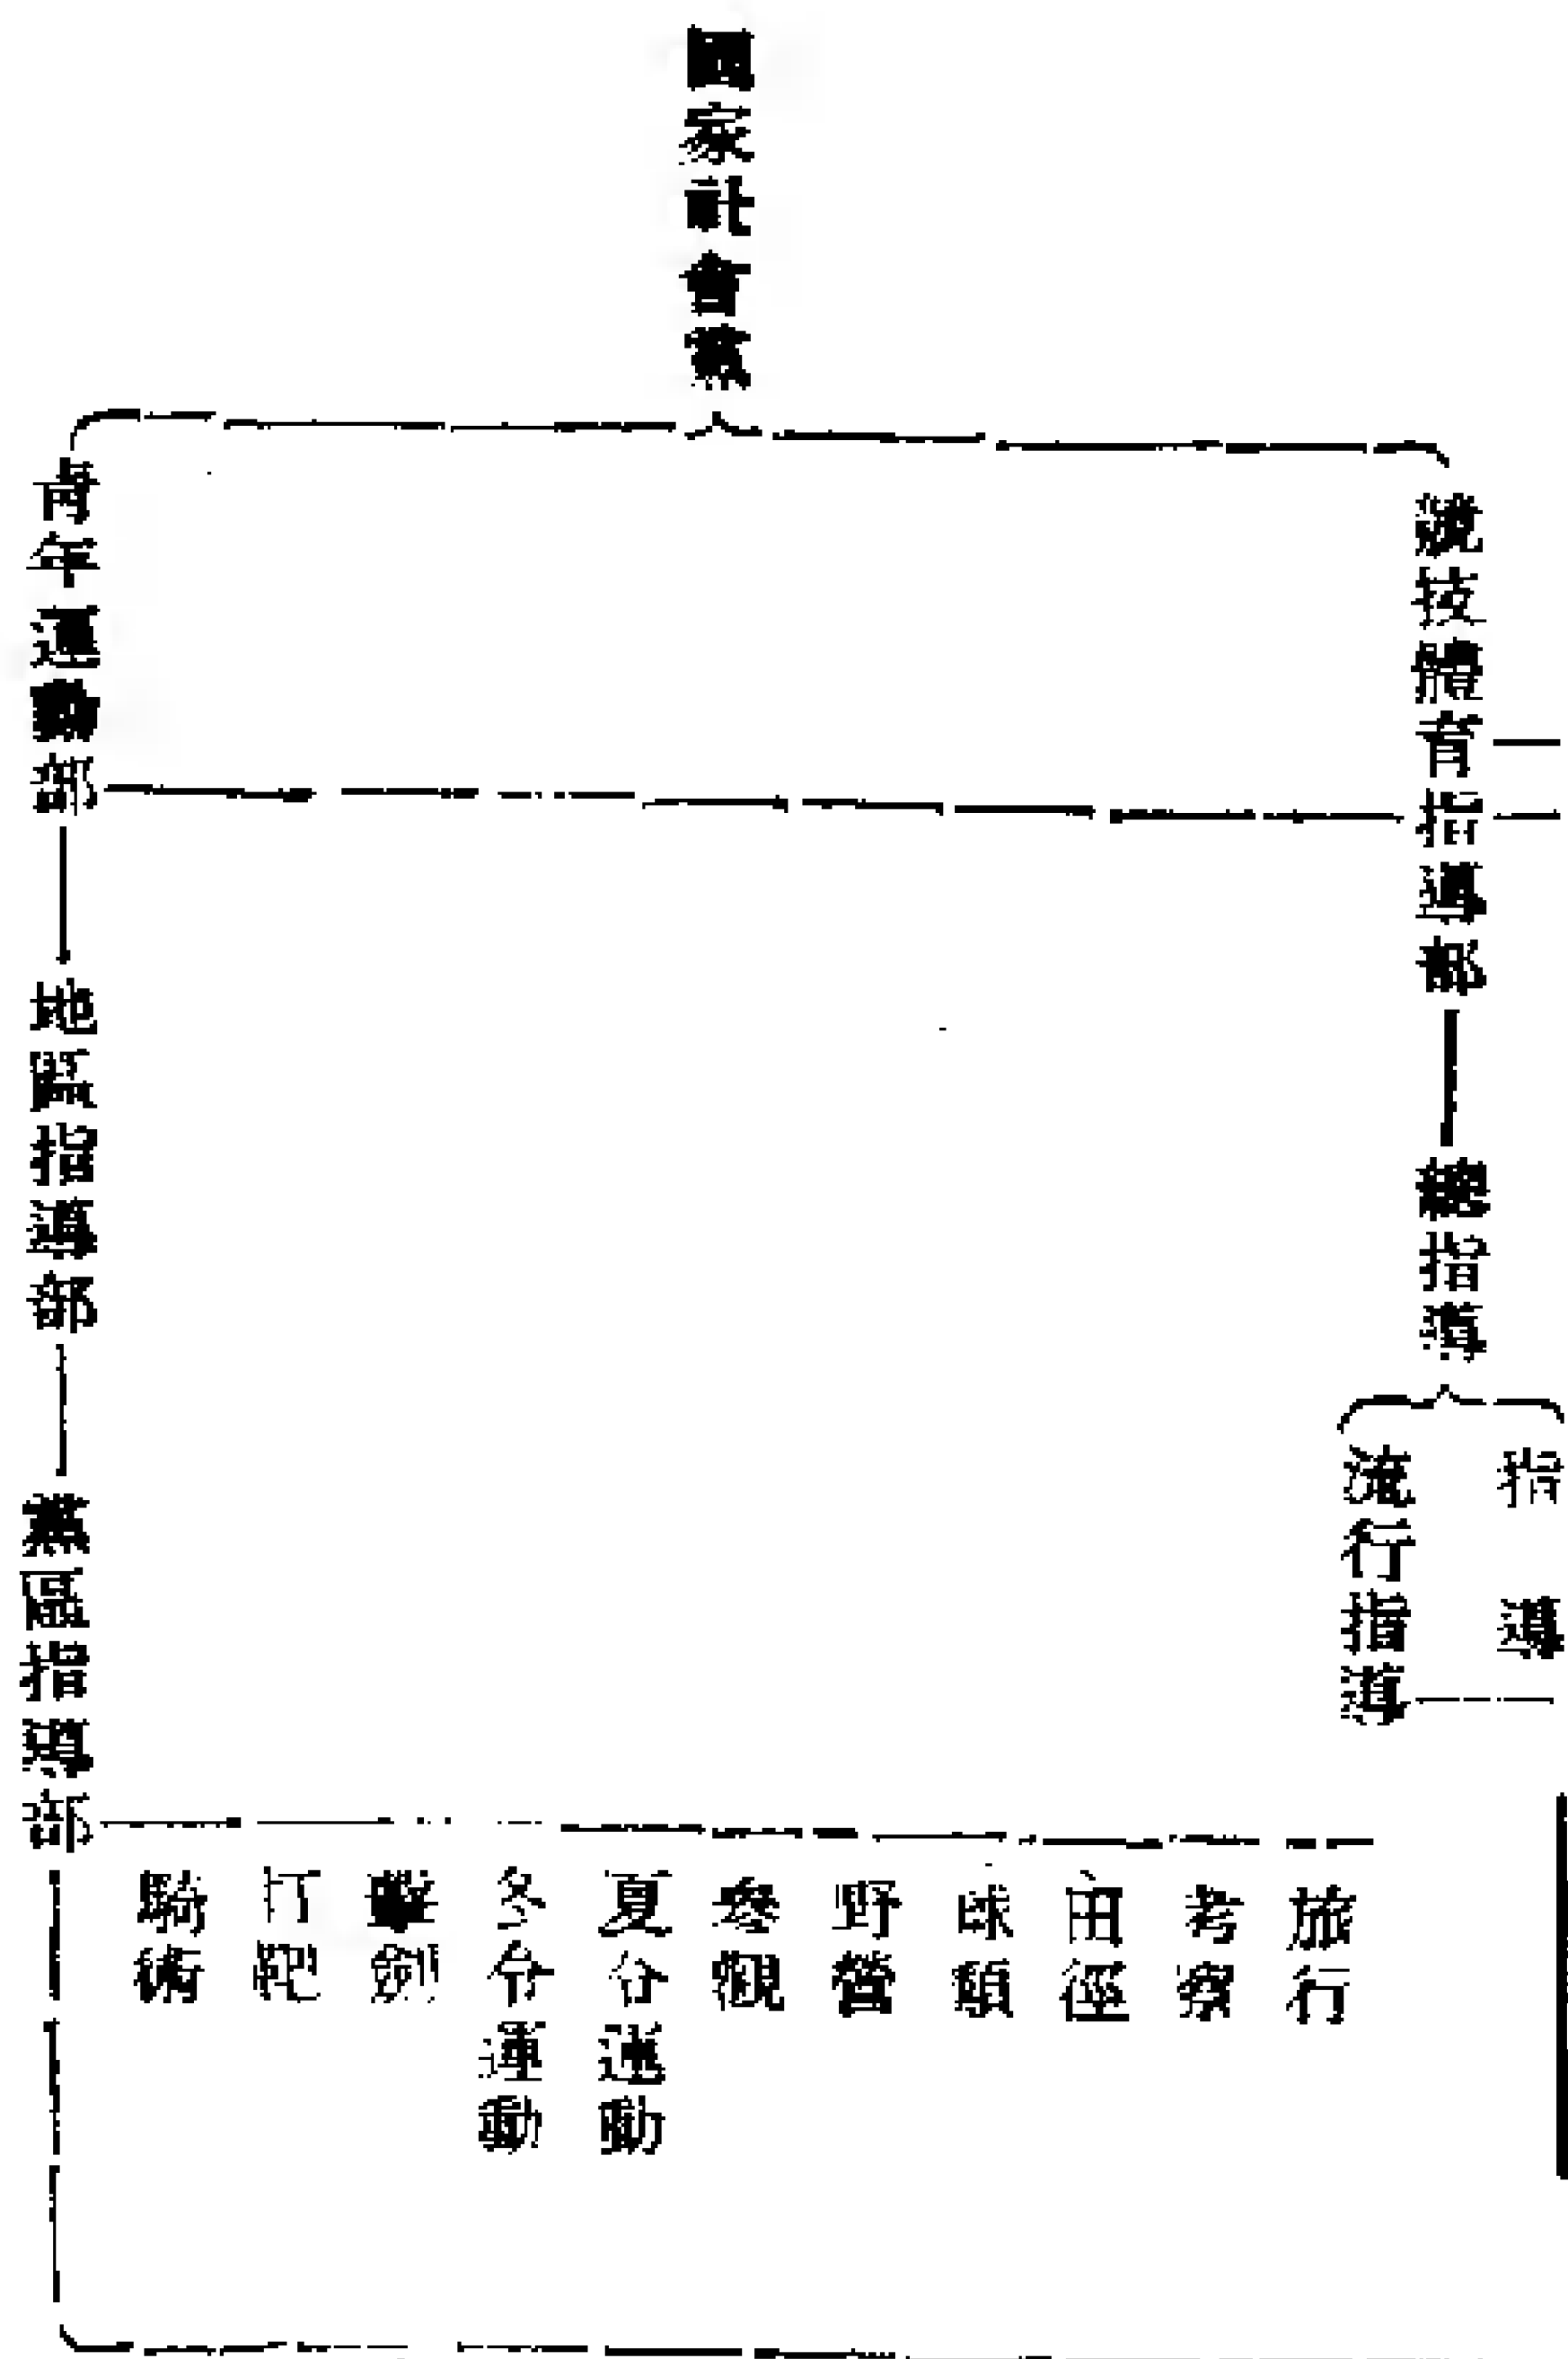 國家社會黨
競技體育指導部
總指導
指導
流行指導
青年運動部
地區指導部
區指導部
旅行
考察
田徑
球類
野營
參觀
夏令運動
冬令運動
擊劍
打靶
騎術